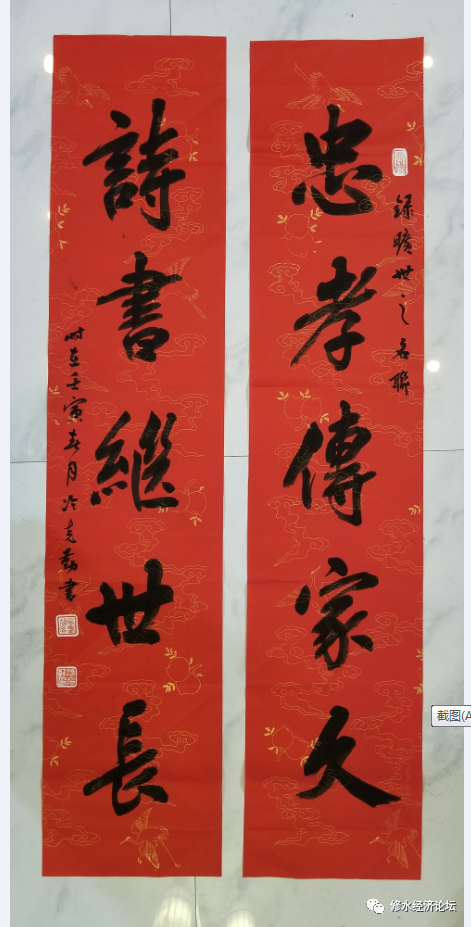 録曠世之名聯
忠孝傳家久
詩書繼世長
時在壬寅春月冷克勤書
截图(A
修水经济论坛